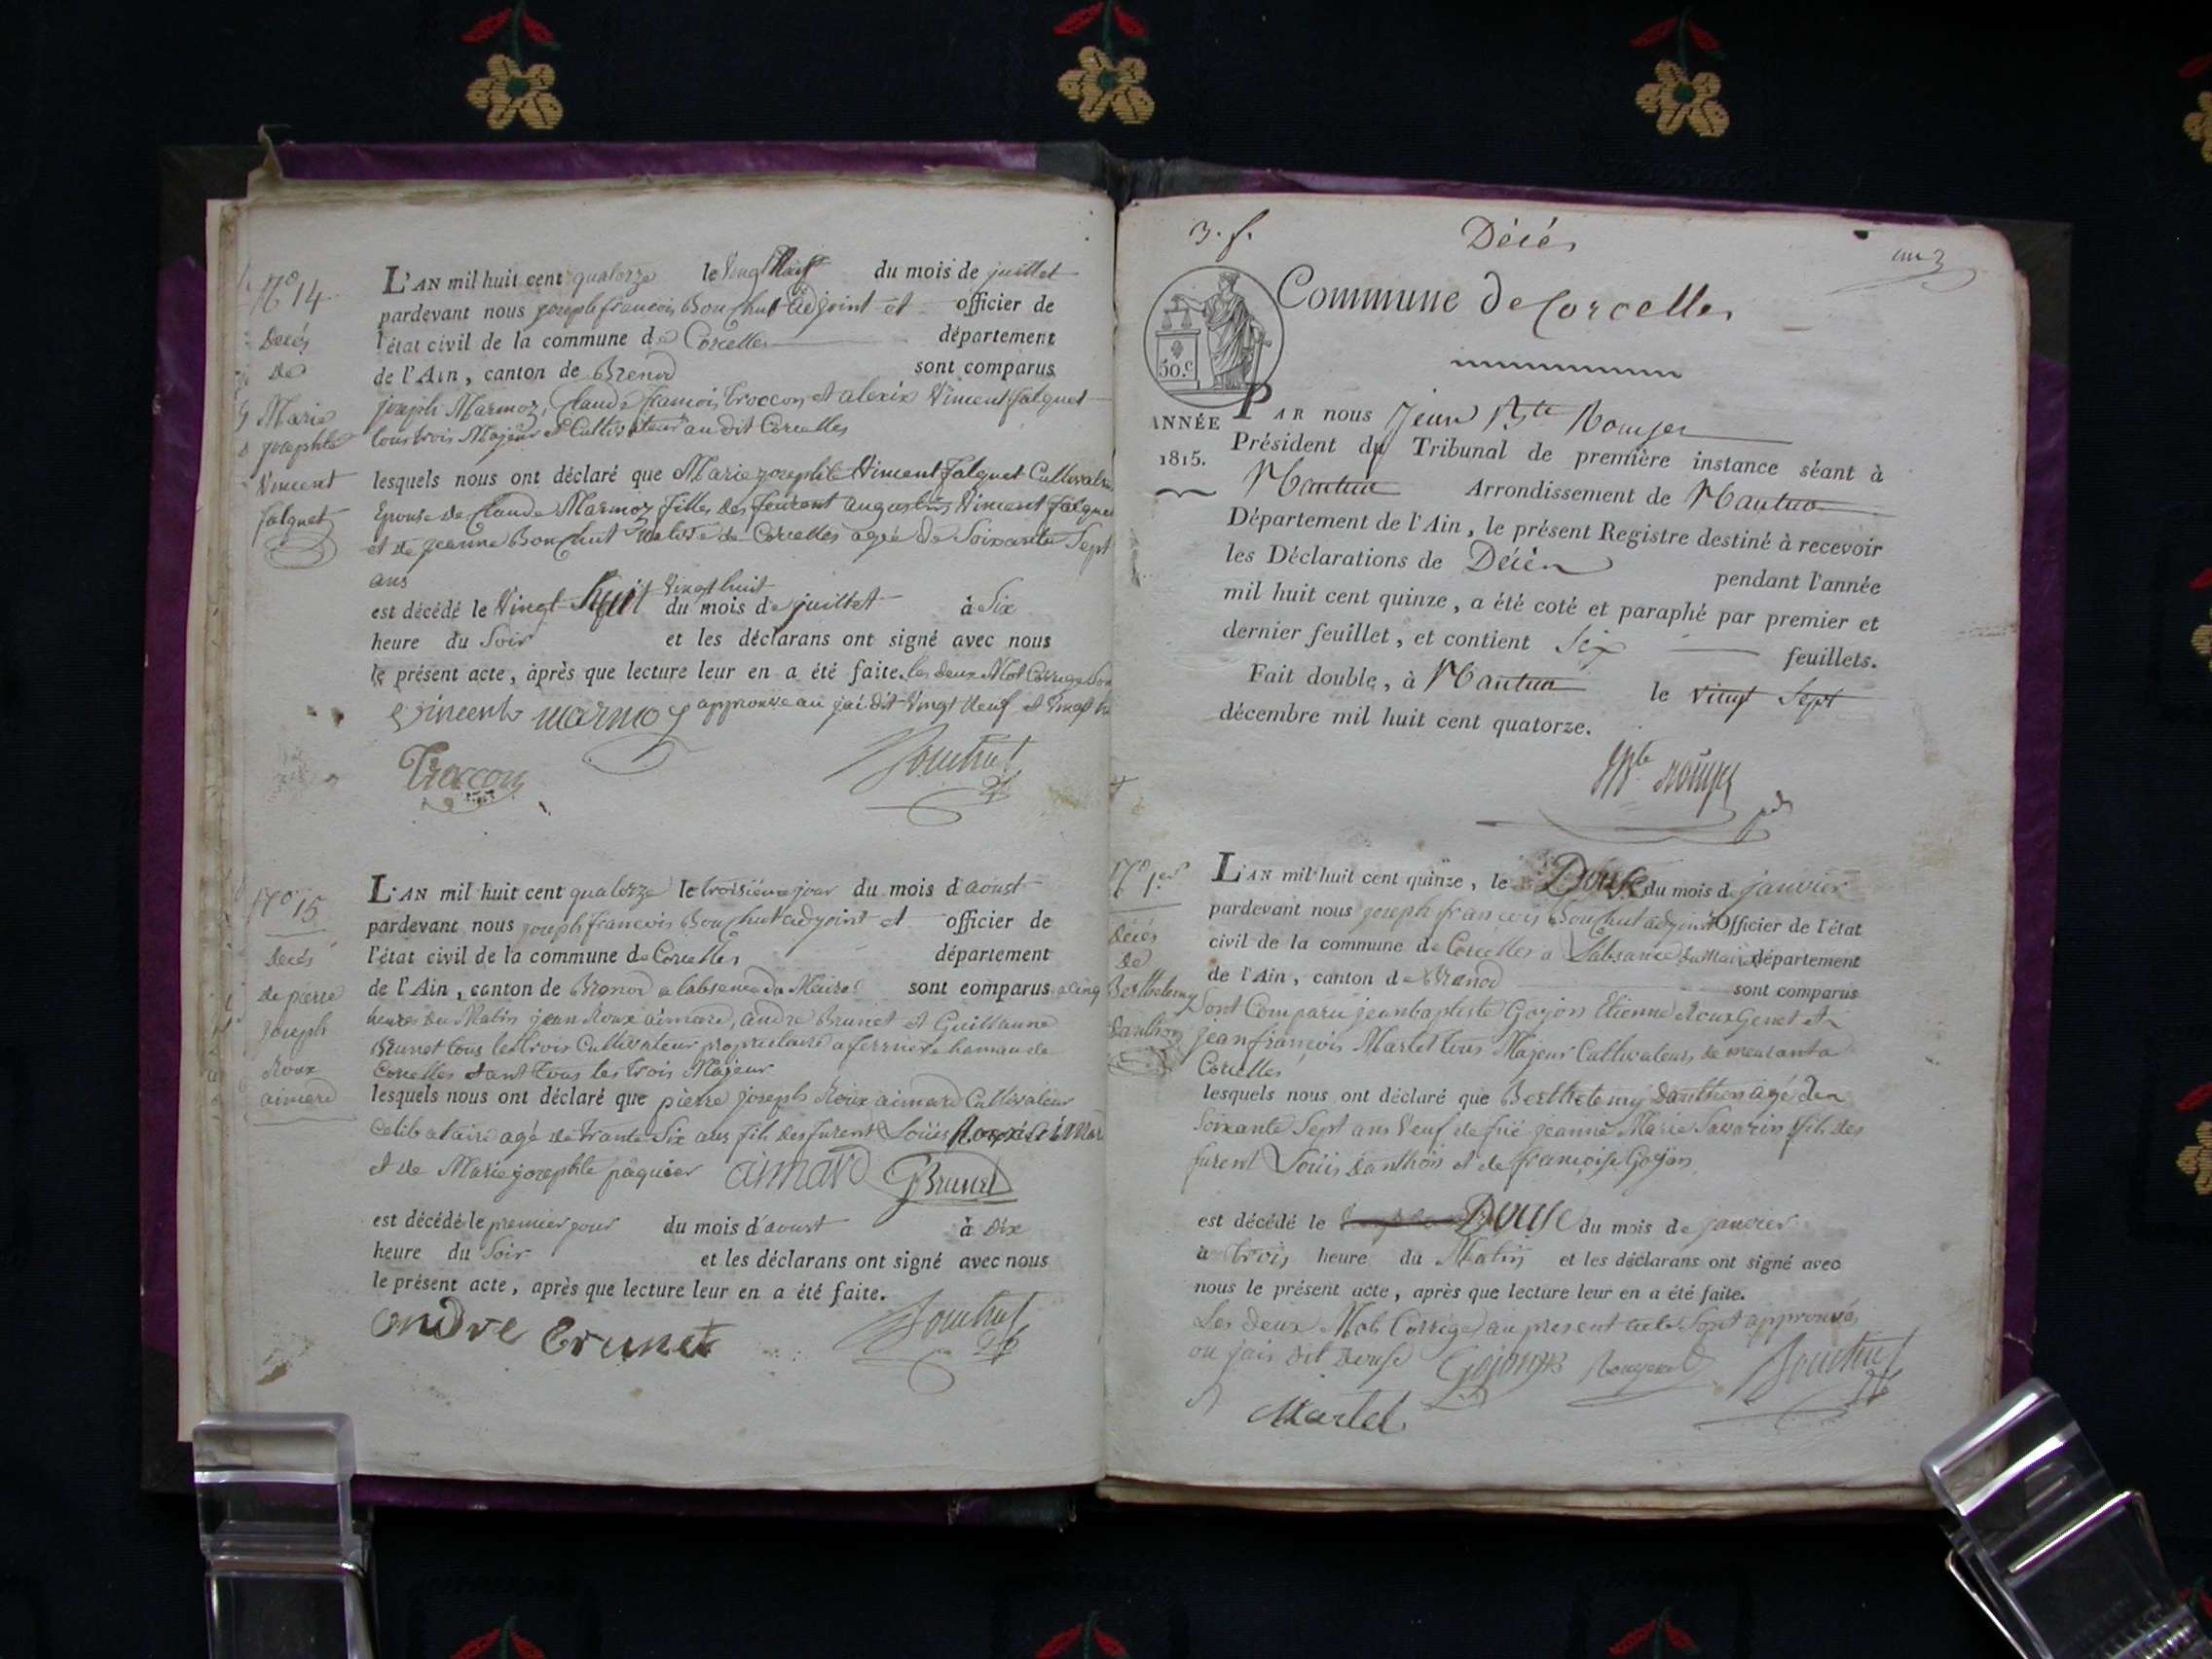 N° 14
Decés
de
Marie
josephte
Vincent
falquet
L'AN mil huit cent quatorze le Vingt du mois de juillet
pardevant nous joseph francois Bouchut adjoint et officier de
l'état civil de la commune de Corcelles département
de l'Ain, canton de Brenod sont comparus
joseph Marmoz, Claude francois Troccon et alexix Vincent falquet
tous trois Majeur et Cultivateur au dit Corcelles
lesquels nous ont déclaré que Marie josephte Vincent falquet
Epouse de Claude Marmoz filles des feurent augustin Vincent falquet
et de jeanne Bouchut de Corcelles agée de Soixante Sept
ans
vingt huit
est décédé le Vingt huit du mois de juillet à Six
heure du Soir et les déclarans ont signé avec nous
le présent acte, après que lecture leur en a été faite. les deux Mot Corrigé
approuve au jai dit Vingt Neuf et Vingt
Vincent marmoz
Troccon Bouchut
N° 15
Decés
de pierre
Joseph
Roux
aimard
L'AN mil huit cent quatorze le troisiéme jour du mois d'aoust
pardevant nous joseph francois Bouchut adjoint et officier de
l'état civil de la commune de Corcelles département
de l'Ain, canton de Brenod a labsence du Maire sont comparus a cinq
heures du Matin jean Roux aimard, andré Brunet et Guillaume
Brunet tous les trois Cultivateur proprietaire a ferriere hamau de
Corcelles etant tous les trois Majeur
lesquels nous ont déclaré que pierre joseph Roux aimard Cultivateur
Celibataire agé de trante Six ans fils des furent Loüis
et de Marie josephte pâquier aimard GBrunet
est décédé le premier jour du mois d'aoust à dix
heure du Soir et les déclarans ont signé avec nous
le présent acte, après que lecture leur en a été faite.
andre brunet Bouchut
3. f. Décés
Commune de Corcelles
50.c
ANNÉE
1815.
PAR nous Jean Bte Rouyer
Président du Tribunal de première instance séant à
Nantua Arrondissement de Nantua
Département de l'Ain, le présent Registre destiné à recevoir
les Déclarations de Décés pendant l'année
mil huit cent quinze, a été coté et paraphé par premier et
dernier feuillet, et contient Six feuillets.
Fait double, à Nantua le vingt Sept
décembre mil huit cent quatorze.
N° 1er
Décés
de
Berthelemy
Danthon
L'AN mil huit cent quinze, le Douse du mois de janvier
pardevant nous joseph francois Bouchut adjoint Officier de l'état
civil de la commune de Corcelles a Labsance du Maire département
de l'Ain, canton de Brenod sont comparus
Sont Comparu jean baptiste Gojon Etienne Roux Genet et
jean françois Martel tous Majeur Cultivateurs de meuranta
Corcelles
lesquels nous ont déclaré que Berthelemy Danthon agé de
Soixante Sept ans Veuf de fuë jeanne Marie Savarin fils des
furent Loüis danthon et de françoise Gojon
est décédé le Douse du mois de janvier
à trois heure du Matin et les déclarans ont signé avec
nous le présent acte, après que lecture leur en a été faite.
Les deux Mots Corrigé au present acte Sont approuvés
ou jais dit douse Gojon Bouchut
Martel